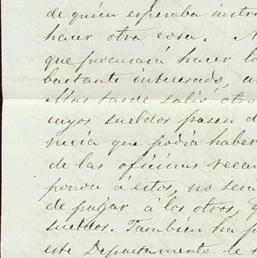 de quien esperaba instru
hacer otra cosa. 
que procurará hacer lo
bastante interesado, a
Mas tarde salió otro
cuyos sueldos pasan d
necia que podia haber
de las oficinas recau
ponda á estos, no sea
de pagar á los otros, y
sueldos. Tambien ha p
este Departamento le